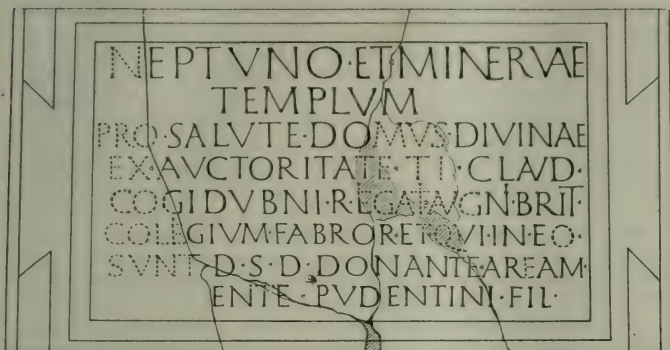 NEPTVNO·ET·MINERVAE
TEMPLVM
PRO·SALVTE·DOMVS·DIVINAE
EX·AVCTORITATE·TI·CLAVD·
COGIDVBNI·REGAT·AVGN·BRIT·
COLLEGIVM·FABROR·ET·QVI·IN·EO·
SVNT·D·S·D·DONANTE·AREAM·
ENTE·PVDENTINI·FIL·